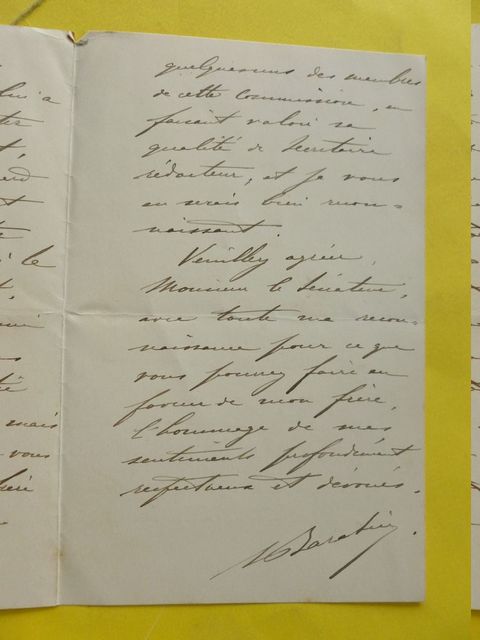 lui a
quelques uns des membres
de cette Commission, en
faisant valoir sa
qualité de Secrétaire
rédacteur, et je vous
en serais bien recon-
naissant.
Veuillez agréer,
Monsieur le Sénateur,
avec toute ma recon-
naissance pour ce que
vous pourrez faire en
faveur de mon frère,
l'hommage de mes
sentiments profondément
respectueux et dévoués.
le
mais
vous